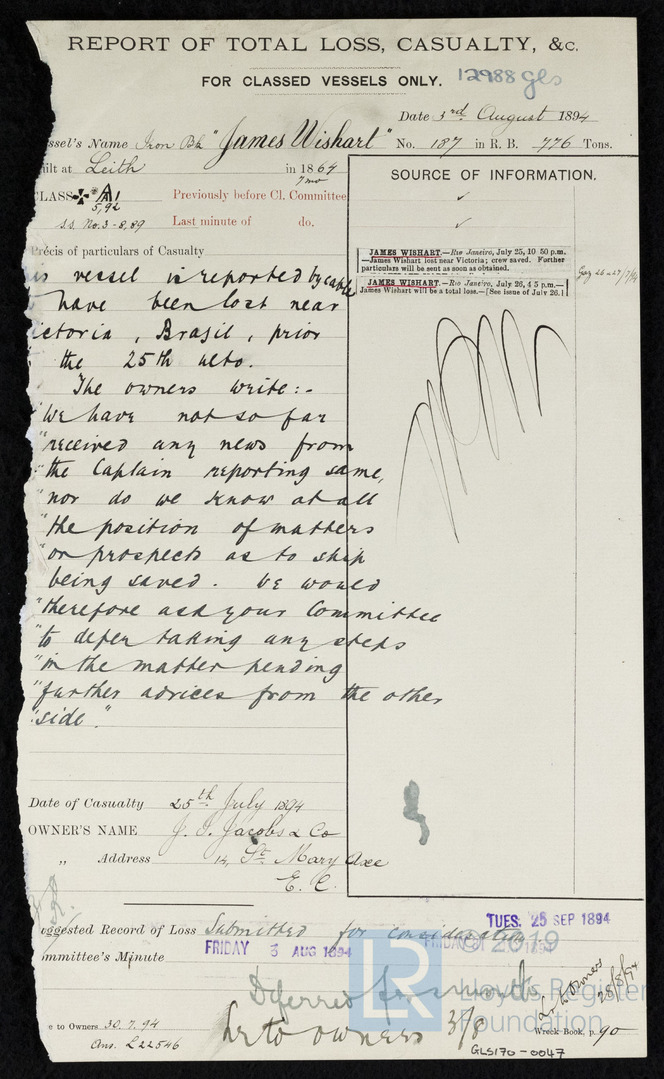 REPORT OF TOTAL LOSS, CASUALTY, &c.
FOR CLASSED VESSELS ONLY.
12988 gls
Date 3rd August 1894
essel's Name Iron Bk "James Wishart" No. 187 in R. B. 776 Tons.
uilt at Leith in 1864
7 mo
CLASS A1
5,92
Previously before Cl. Committee
s.s. No.3 - 8,89 Last minute of do.
SOURCE OF INFORMATION.
JAMES WISHART.—Rio Janeiro, July 25, 10 50 p.m.
—James Wishart lost near Victoria; crew saved. Further
particulars will be sent as soon as obtained.
JAMES WISHART.—Rio Janeiro, July 26, 4 5 p.m.—
James Wishart will be a total loss.—[See issue of July 26.]
Précis of particulars of Casualty
is vessel is reported by cable
have been lost near
ictoria, Brasil, prior
the 25th ulto.
The owners write:-
"We have not so far
"received any news from
"the Captain reporting same,
"nor do we know at all
"the position of matters
"or prospects as to ship
being saved. We would
"therefore ask your Committee
"to defer taking any steps
"in the matter pending
"further advices from the other
"side".
Date of Casualty 25th July 1894
OWNER'S NAME J. I. Jacobs & Co
„ Address 14, St. Mary Axe
E. C.
TUES. 25 SEP 1894
uggested Record of Loss Submitted for consideration
FRIDAY 3 AUG 1894
ommittee's Minute
© 2019
LR
Lloyd's Register
Foundation
Deferred for a month
Lr to owners 3/8
L. to Owners
28/8/94
e to Owners 30.7.94
Ans. L22546
Wreck Book, p. 90
GLS170-0047